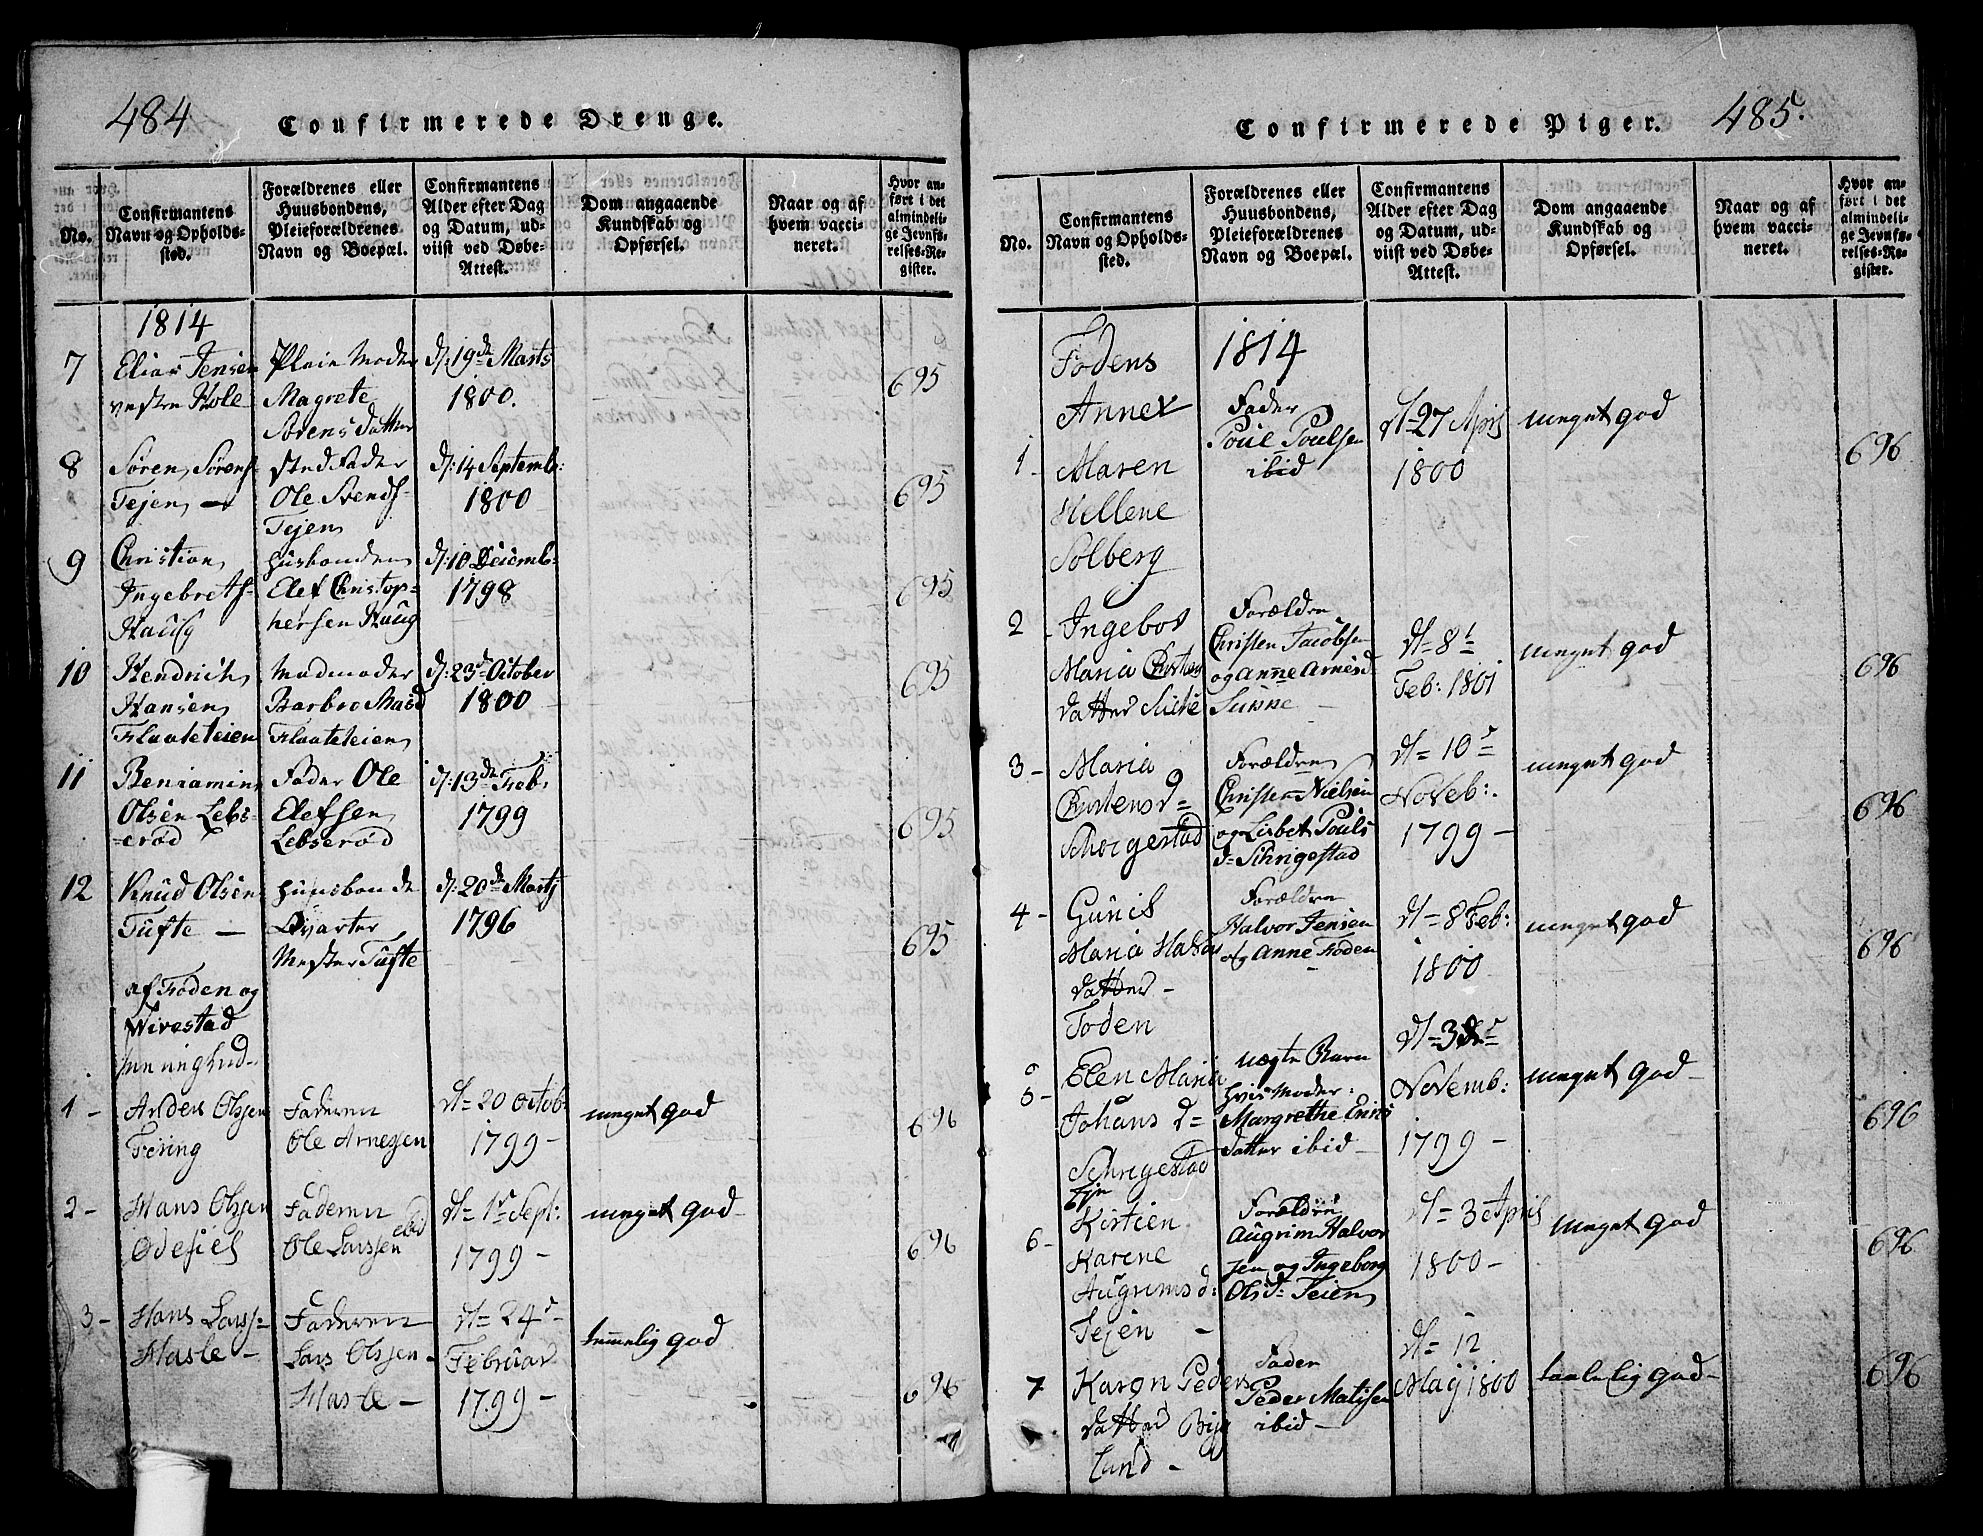 484
Confirmerede Drenge.
No.
Confirmantens
Navn og Opholds-
sted.
Forældrenes eller
Huusbondens,
Pleieforældrenes
Navn og Boepæl.
Confirmantens
Alder efter Dag
og Datum, ud-
viist ved Døbe-
Attest.
Dom angaaende
Kundskab og
Opførsel.
Naar og af
hvem vacci-
neret.
Hvor an-
ført i det
almindeli-
ge Jevnfø-
relses-Re-
gister.
1814
7
Eliar Jensen
vestre Hole
Pleie Moder
Magrete
Sørensdatter
d: 19de Marts
1800.
695
8
Søren Sørens-
Tejen
stedFader
Ole Svends-
Tejen
d: 14 Septembr:
1800
695
9
Christian
Ingebrets-
Haug
Husbonden
Elef Christop-
hersen Haug
d: 10 Decemb:
1798
695
10
Hendrich
Hansen
Flaateteien
Madmoder
Barbro Masd
Flaateteien
d: 23d October
1800
695
11
Beniamin
Olsen Lebs-
erød
Fader Ole
Elefsen
Lebserød
d: 13de Febr
1799
695
12
Knud Olsen
Tufte
Huusbonde
Qvarter
Mester Tufte
d: 20de Martj
1796
695
af Foden og
Wirestad
meninghed
1 -
Anders Olssen
Fering
Faderen
Ole Arnessen
d= 20 Octob:
1799 -
meget god
696
2 -
Hans Olssen
Ødefiel
Faderen
Ole Larssen ibid
d= 1r Sept:
1799 -
meget god
696
3 -
Hans Larss-
Hasle -
Faderen
Lars Olssen
Hasle -
d= 24d
Februar
1799 -
temmelig god
696
485.
Confirmerede Piger.
No.
Confirmantens
Navn og Opholds-
sted.
Forældrenes eller
Huusbondens,
Pleieforældrenes
Navn og Boepæl.
Confirmantens
Alder efter Dag
og Datum, ud-
viist ved Døbe-
Attest.
Dom angaaende
Kundskab og
Opførsel.
Naar og af
hvem vacci-
neret.
Hvor an-
ført i det
almindeli-
ge Jevnfø-
relses-Re-
gister.
Fodens
Annex
1814
1 -
Maren
Hellene
Solberg
Fader
Poul Poulsen
ibid
d= 27 April
1800
meget god
696
2 -
Ingebor
Maria Christens
datter
Forældre
Christen Jacobsen
og Anne Arnesd
Sunne
d= 8t
Feb: 1801
meget god
696
3 -
Maria
Christens d=
Forældre
Christen Nielsen
og Lisbet Pouls
d= Schrigestad
d= 10d
Noveb:
1799 -
meget god
696
4 -
Gunil
Maria Halvors
datter -
Foden
Forældre
Halvor Jensen
og Anne Foden
d= 8 Feb:
1800
meget god
696
5 -
Elen Maria
Johans d=
Schrigestad
uægte Barn
hvis Moder:
Margrethe
datter ibid -
Novemb:
1799 -
meget god -
696
6 -
Kirstien
Karene
Augrims d:
Tejen -
Forældre
Augrim Halvor
sen og Ingeborg
Olsd= Teien
d= 3 April
1800 -
meget god
696
7
Karen Peders
datter
land -
Fader
Peder Matisen
ibid -
d= 12
Maij 1800
taalelig god -
696